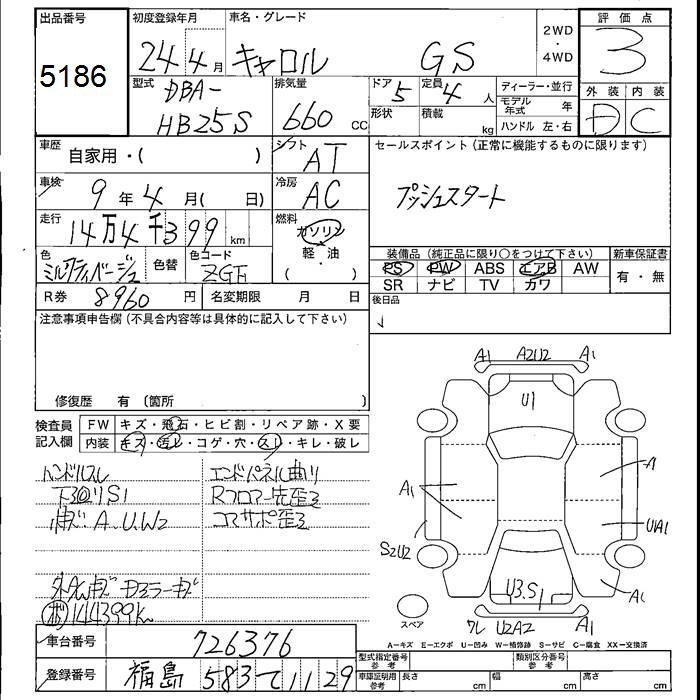 出品番号
5186
初度登録年月
24年4月
車名・グレード
キャロル GS
2WD
・
4WD
評価点
3
型式
DBA-
HB25S
排気量
660 CC
ドア 5
形状
定員 4 人
積載 kg
ディーラー・並行
モデル年式 年
ハンドル 左・右
外装 内装
D C
車歴 自家用・( )
シフト AT
車検 9年4月( 日)
冷房 AC
走行 14万4千399 km
燃料 ガソリン
軽・油
( )
色 ミルクティベージュ
色替
色コード ZGF
R券 8960円
名変期限 月 日
セールスポイント(正常に機能するものに限ります)
プッシュスタート
装備品(純正品に限り〇をつけて下さい)
PS PW ABS エアB AW
SR ナビ TV カワ
新車保証書
有・無
後日品
注意事項申告欄(不具合内容等は具体的に記入して下さい)
修復歴 有(箇所 )
検査員記入欄
FW キズ・飛石・ヒビ割・リペア跡・X要
内装 キズ・汚レ・コゲ・穴・スレ・キレ・破レ
ハンドルスレ
下回りS1
A.U.W2
エンドパネル曲り
Rフロアー先歪み
コアサポ歪み
ドアミラーキズ
144399k
A1 A2U2 A1
U1
A1
A
U1A1
S2U2
U3.S1
A1
U2A2 A1
スペア
A-キズ E-エクボ U-凹み W-補修跡 S-サビ C-腐食 XX-交換済
車台番号 726376
登録番号 福島 583 て 11 29
型式指定番号 参考
類別区分番号 参考
車庫証明用 参考
長さ cm
幅 cm
高さ cm